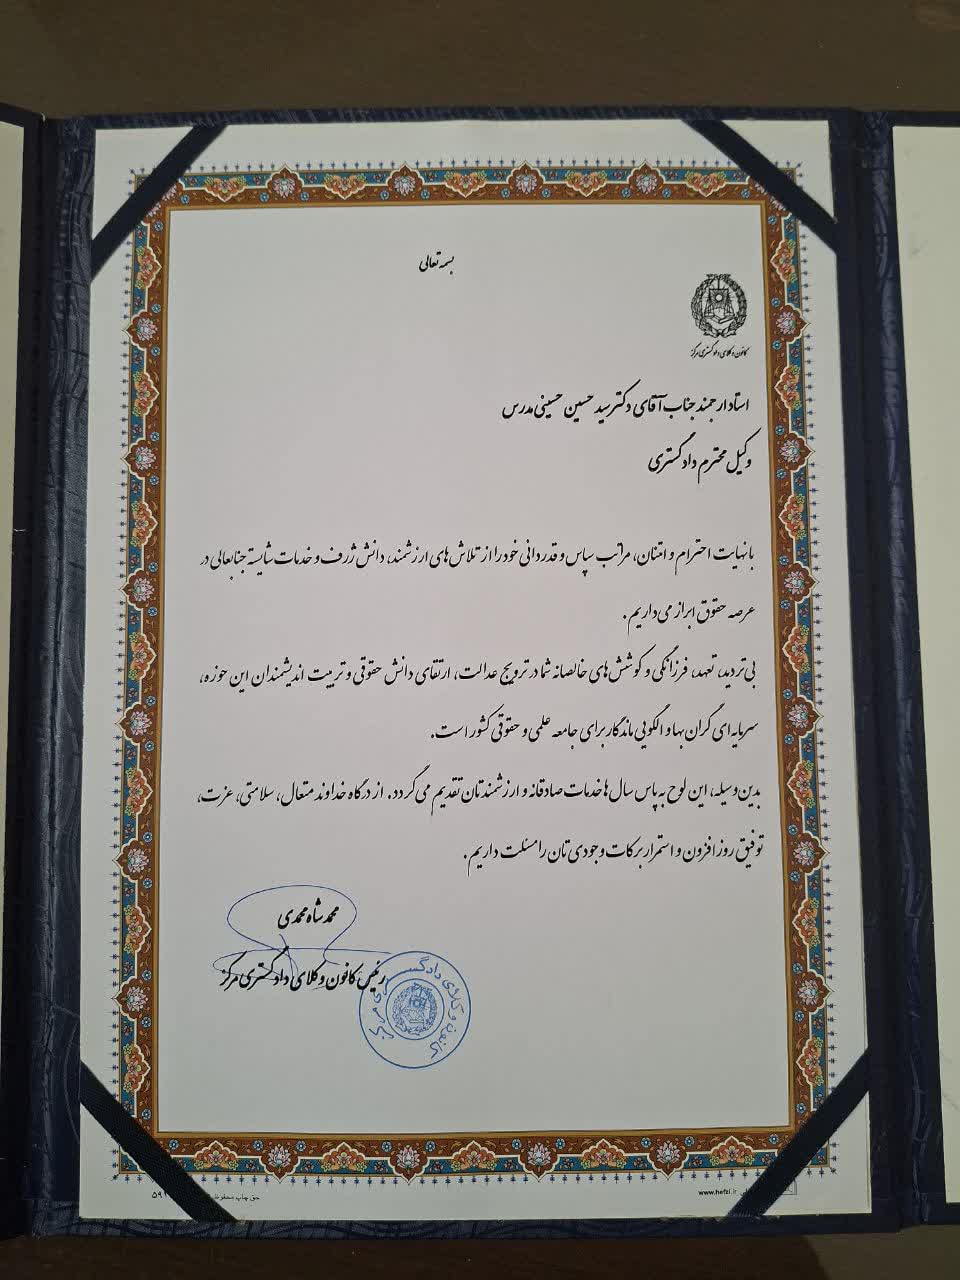 بسمه تعالی
کانون وکلای دادگستری مرکز
استاد ارجمند جناب آقای دکتر سید حسین حسینی مدرس
وکیل محترم دادگستری
با نهایت احترام و امتنان، مراتب سپاس و قدردانی خود را از تلاش‌های ارزشمند، دانش ژرف و خدمات شایسته جنابعالی در
عرصه حقوق ابراز می‌داریم.
بی‌تردید، تعهد، فرزانگی و کوشش‌های خالصانه شما در ترویج عدالت، ارتقای دانش حقوقی و تربیت اندیشمندان این حوزه،
سرمایه‌ای گران بها و الگویی ماندگار برای جامعه علمی و حقوقی کشور است.
بدین وسیله، این لوح به پاس سال‌ها خدمات صادقانه و ارزشمندتان تقدیم می‌گردد. از درگاه خداوند متعال، سلامتی، عزت،
توفیق روز افزون و استمرار برکات وجودی‌تان را مسئلت داریم.
محمد شاه محمدی
رئیس کانون وکلای دادگستری مرکز
کانون وکلای دادگستری مرکز
www.hefzi.ir
حق چاپ محفوظ